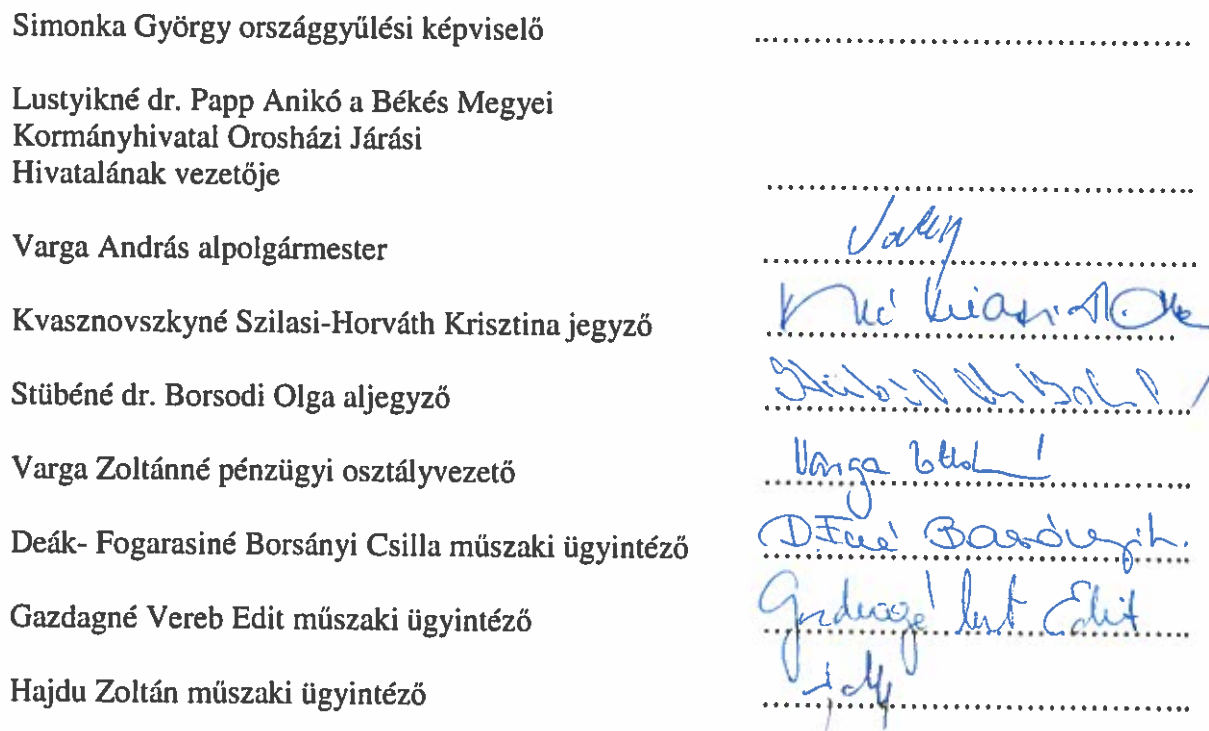 Simonka György országgyűlési képviselő ............................................
Lustyikné dr. Papp Anikó a Békés Megyei
Kormányhivatal Orosházi Járási
Hivatalának vezetője ............................................
Varga András alpolgármester ............................................
Kvasznovszkyné Szilasi-Horváth Krisztina jegyző ............................................
Stübéné dr. Borsodi Olga aljegyző ............................................
Varga Zoltánné pénzügyi osztályvezető Varga
Deák- Fogarasiné Borsányi Csilla műszaki ügyintéző ............................................
Gazdagné Vereb Edit műszaki ügyintéző Edit
Hajdu Zoltán műszaki ügyintéző ............................................